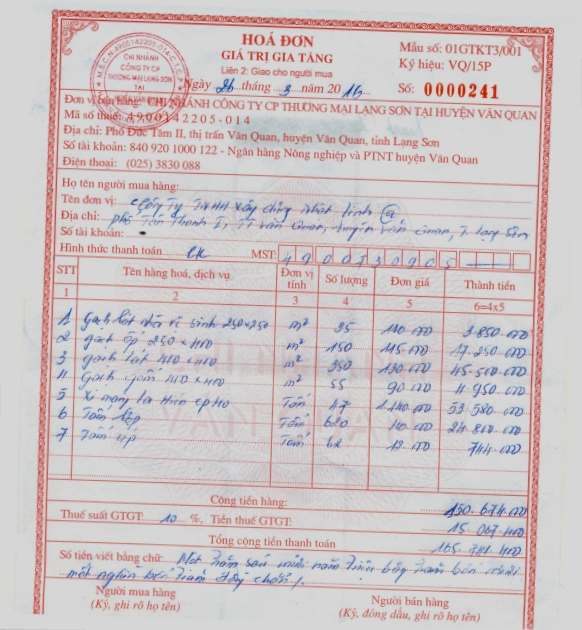 HOÁ ĐƠN
GIÁ TRỊ GIA TĂNG
Liên 2: Giao cho người mua
Mẫu số: 01GTKT3/001
Ký hiệu: VQ/15P
Số: 0000241
Ngày 26 tháng 3 năm 2016
M.S.C.N:4900142205-014-C.T.C.P
CHI NHÁNH
CÔNG TY CP
THƯƠNG MẠI LẠNG SƠN
TẠI
Đơn vị bán hàng: CHI NHÁNH CÔNG TY CP THƯƠNG MẠI LẠNG SƠN TẠI HUYỆN VĂN QUAN
Mã số thuế: 4900142205-014
Địa chỉ: Phố Đức Tâm II, thị trấn Văn Quan, huyện Văn Quan, tỉnh Lạng Sơn
Số tài khoản: 840 920 1000 122 - Ngân hàng Nông nghiệp và PTNT huyện Văn Quan
Điện thoại: (025) 3830 088
Họ tên người mua hàng:
Tên đơn vị: Công ty TNHH xây dựng Nhật Linh
Địa chỉ: phố Tân Thanh I, TT Văn Quan, huyện Văn Quan, T. Lạng Sơn
Số tài khoản:
Hình thức thanh toán CK MST:
STT Tên hàng hoá, dịch vụ Đơn vị tính Số lượng Đơn giá Thành tiền
1 2 3 4 5 6=4x5
1 gạch lát nhà vệ sinh 250x250 m² 35 110.000 3.850.000
2 gạch ốp 250 x 400 m² 150 115.000 17.250.000
3 gạch lát 400 x 400 m² 350 130.000 45.500.000
4 gạch 400 x 400 m² 55 90.000 4.950.000
5 Xi măng La Hiên Tấn 47 1.140.000 53.580.000
6 Tấm lợp Tấm 620 40.000 24.800.000
7 Tấm úp Tấm 62 12.000 744.000
Cộng tiền hàng: 150.674.000
Thuế suất GTGT: 10 %, Tiền thuế GTGT: 15.067.400
Tổng cộng tiền thanh toán 165.741.400
Số tiền viết bằng chữ: Một trăm sáu mươi năm triệu bảy trăm bốn mươi
mốt nghìn bốn trăm đồng chẵn
Người mua hàng Người bán hàng
(Ký, ghi rõ họ tên) (Ký, đóng dấu, ghi rõ họ tên)